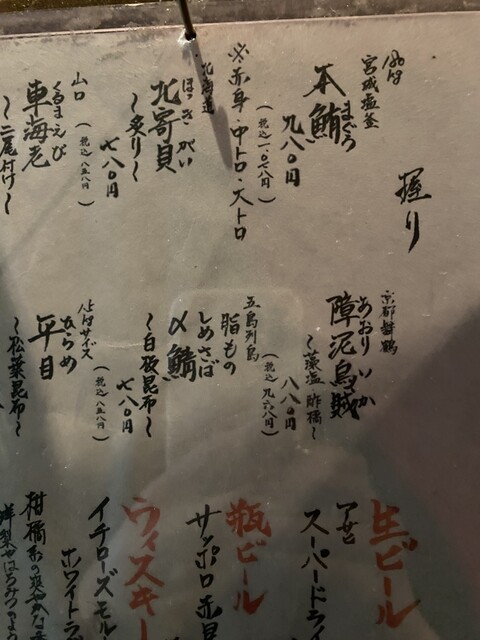 握り
宮城塩釜
本鮪
まぐろ
九八〇円
(税込一、〇七八円)
※赤身・中トロ・大トロ
北海道
北寄貝
ほっきがい
七八〇円
〜炙り〜
(税込八五八円)
山口
車海老
くるまえび
〜二尾付け〜
京都舞鶴
障泥烏賊
あおりいか
〜藻塩 酢橘〜
八八〇円
(税込九六八円)
五島列島
脂もの
しめさば
〆鯖
七八〇円
〜白板昆布〜
(税込八五八円)
平目
ひらめ
〜松葉昆布〜
生ビール
アサヒ
スーパードライ
瓶ビール
サッポロ赤星
ウィスキー
イチローズモル
ホワイトラ
柑橘系の爽やかな香
洋梨やはちみつのよう